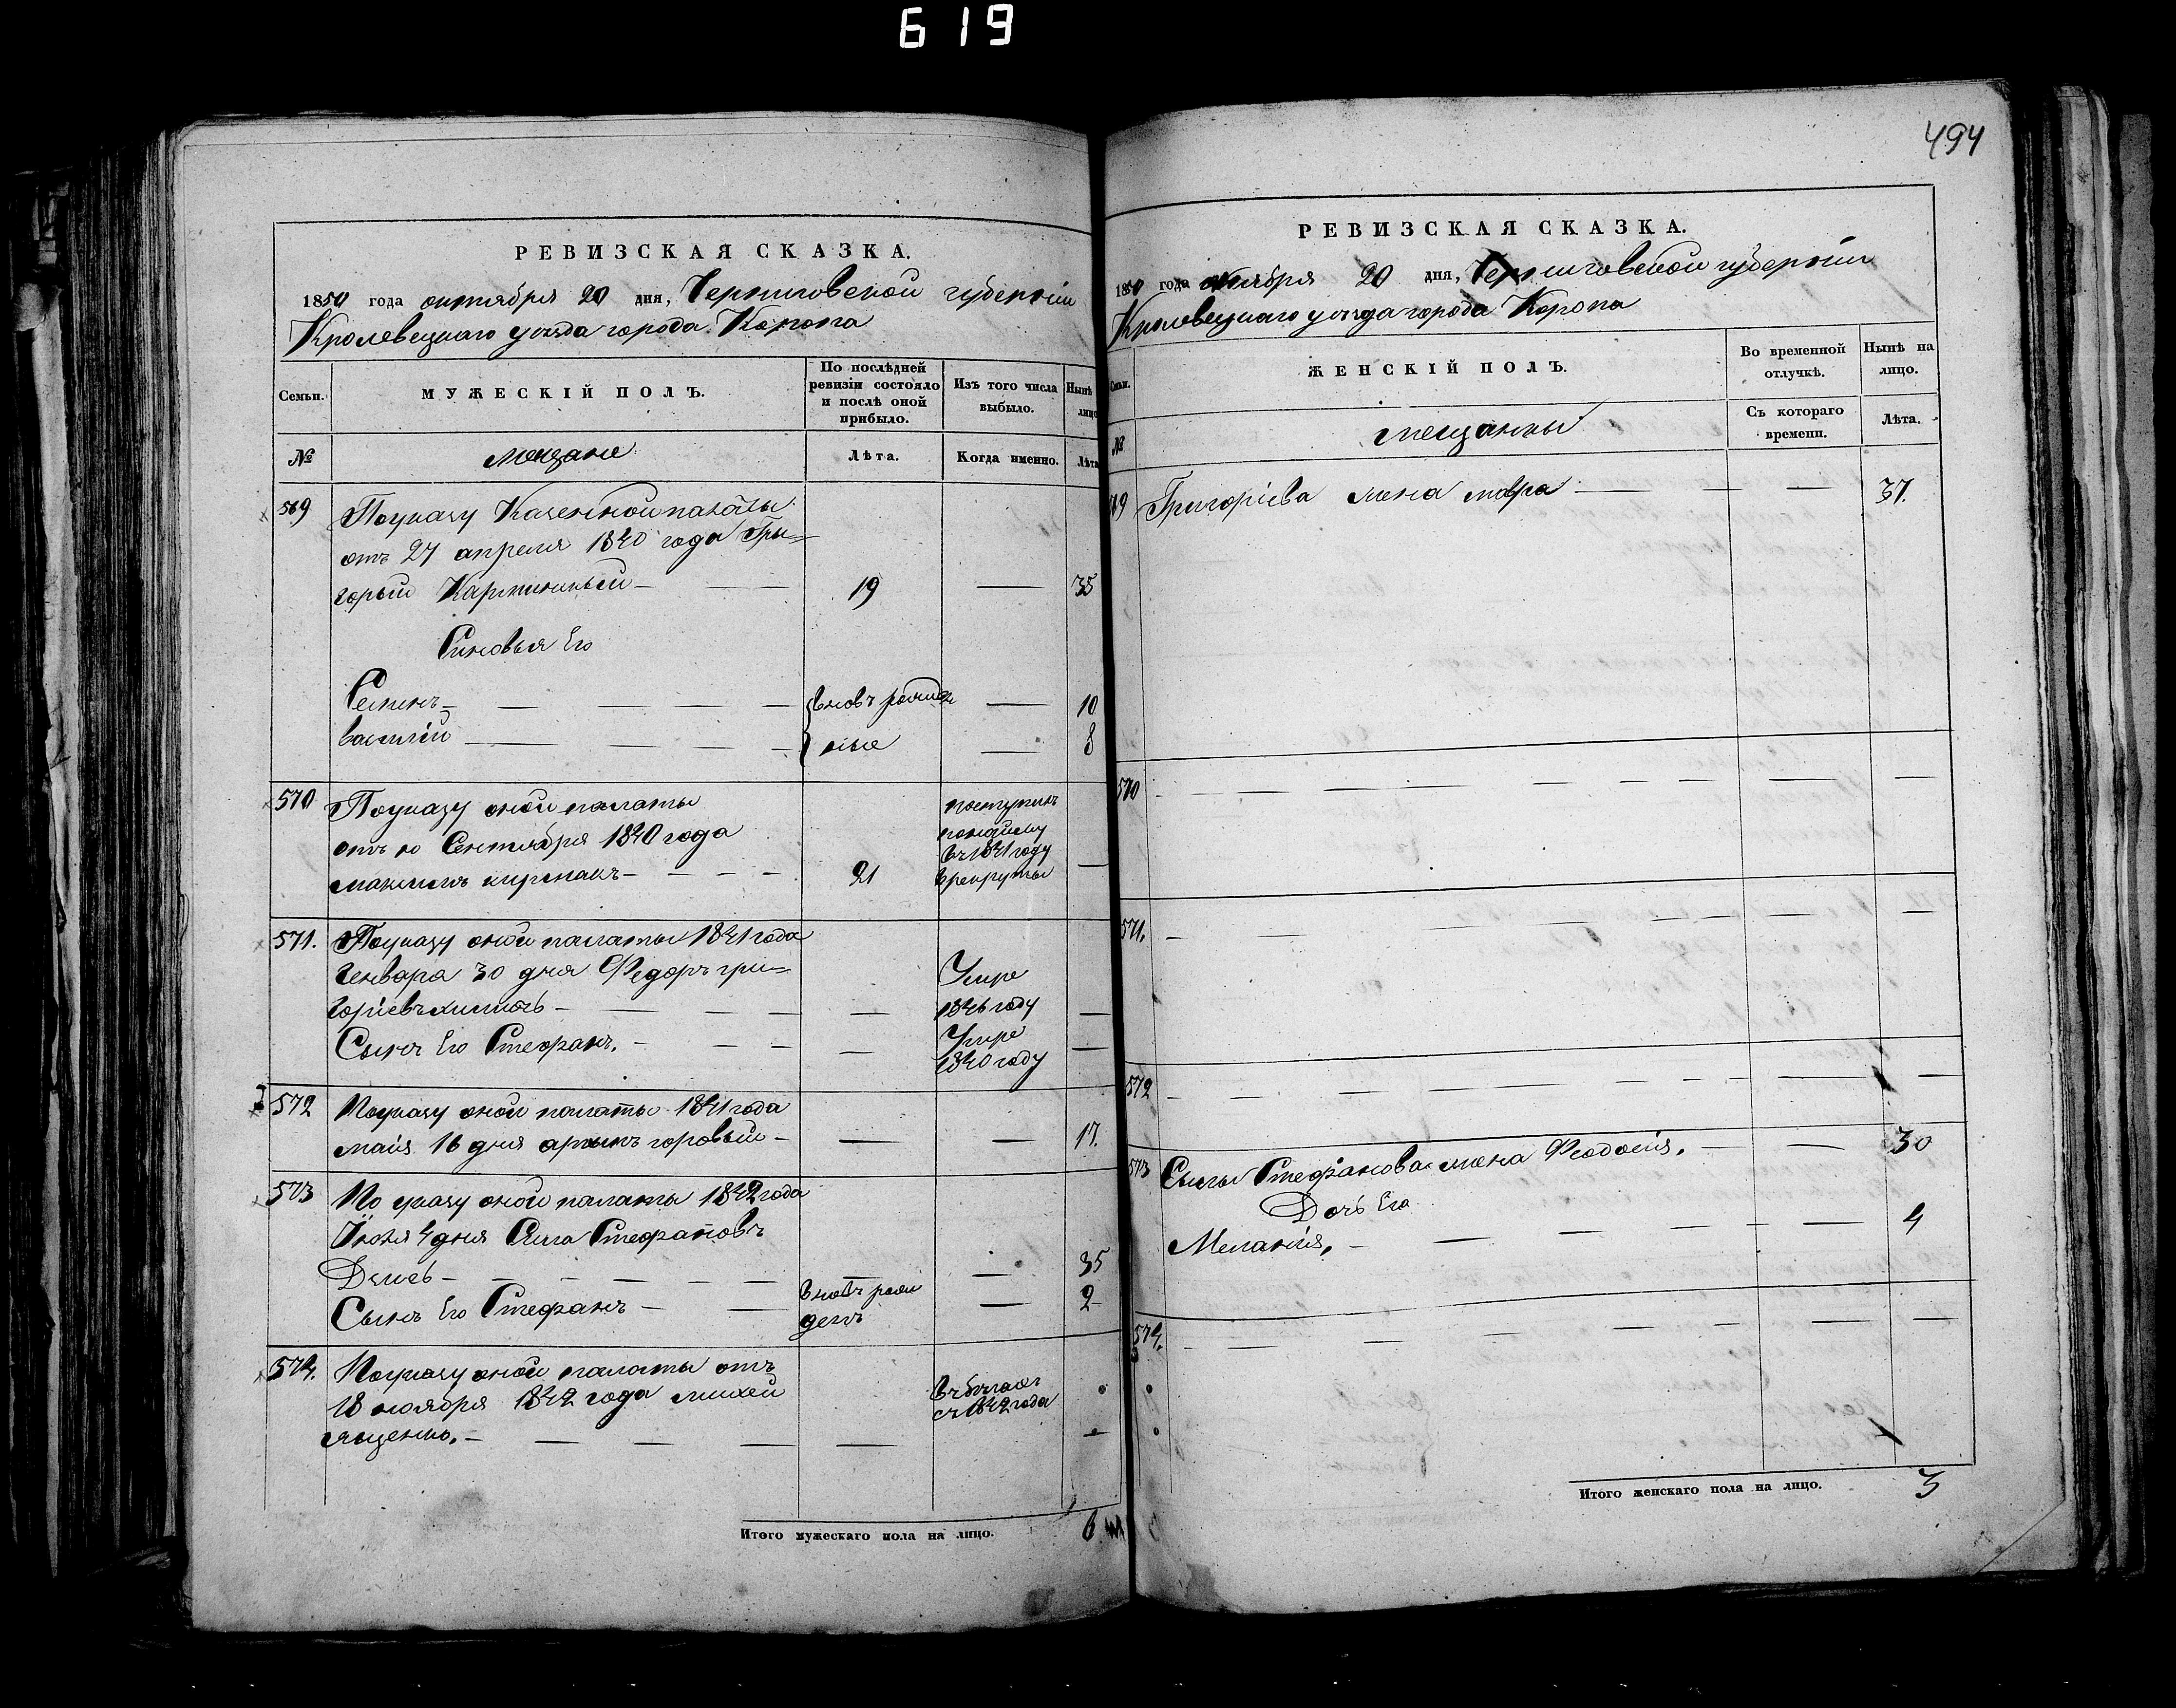 619
494
РЕВИЗСКАЯ СКАЗКА.
1850 года октября 20 дня, Черниговской губернiи
Кролевецкаго уѣзда города Коропа
Семьи.
МУЖЕСКІЙ ПОЛЪ.
По послѣдней ревизіи состояло и послѣ оной прибыло.
Изъ того числа выбыло.
Нынѣ лицо
№
мещане
Лѣта.
Когда именно.
Лѣта
569
По указу Казенной палаты
отъ 27 апреля 1840 года Гры=
горый
19 — 35
Синовья Его
Семенъ — вновь рожден — 10
василій — ные — 8
570
По указу оной палаты
отъ 10 Сентября 1840 года
максимъ 21
поступилъ
в 1841 году
в рекруты
—
571.
По указу оной палаты 1841 года
Генваря 30 дня Федоръ гри=
горіевъ — —
Умре
1846 году
—
Сынъ Его Стефанъ. — —
Умре
1840 году
—
572
По указу оной палаты 1841 года
маія 16 дня горовый — — — 17.
573
По указу оной палаты 1842 года
Іюня 4 дня Сила Стефановъ
— — — 35
Сынъ Его Стефанъ — вновь рож
денъ — 2
574.
По указу оной палаты отъ
18 ноября 1842 года михей
ященко. — —
въ бегахъ
съ 1842 года
Итого мужескаго пола на лицо. 6
РЕВИЗСКАЯ СКАЗКА.
1850 года октября 20 дня, Черниговской губерніи
Кролевецкаго уѣзда города Коропа
Семьи.
ЖЕНСКІЙ ПОЛЪ.
Во временной отлучкѣ.
Нынѣ на лицо.
№
мещанки
Съ котораго времени.
Лѣта.
569 Григоріева жена мавра — — 37.
570 — — —
571. — — —
572 — — —
573 Силы Стефанова жена Феодосія. — — 30
Дочь Его
Меланія, — — 4
574. — — —
Итого женскаго пола на лицо. 3